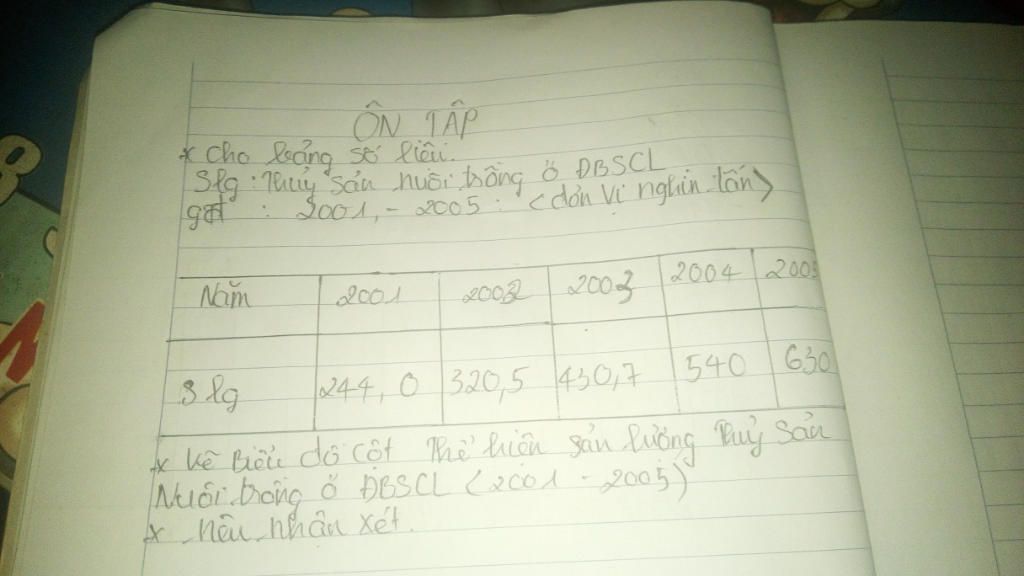 ÔN TẬP
* Cho bảng số liệu.
Slg : Thuỷ sản nuôi trồng ở ĐBSCL
gđ : 2001, - 2005 : <đơn vị nghìn tấn>
Năm 2001 2002 2003 2004 2005
Slg 244,0 320,5 430,7 540 630
* Vẽ biểu đồ cột Thể hiện sản lượng Thuỷ sản
Nuôi trồng ở ĐBSCL (2001 - 2005)
* Nêu nhận xét.